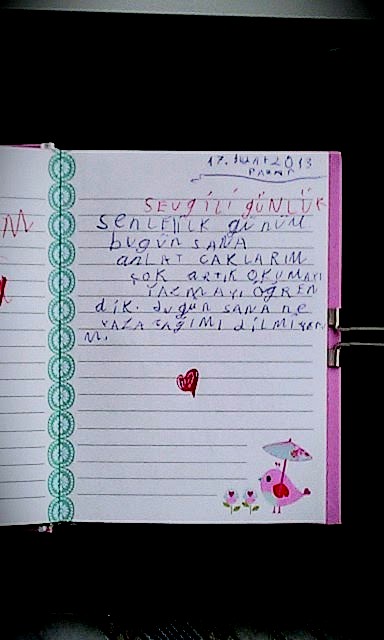 17. ŞUBAT 2013
PAZAR
SEVGİLİ GÜNLÜK
SENLEİLK günüm
bugün SANA
anLAT CAKLARIM
ÇOK ARTIK OKUMAYI
YAZMAYI ÖĞREN
dik. bugün SANA ne
YAZA CAĞIMI bilmiyoru
M.
M